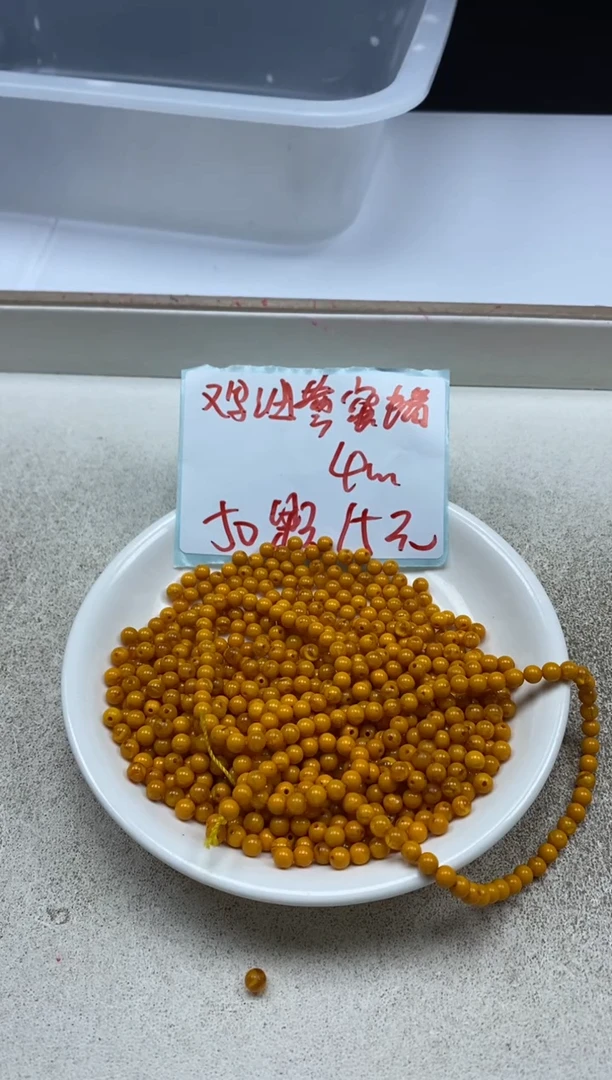 鸡油黄蜜蜡
4m
50颗15元